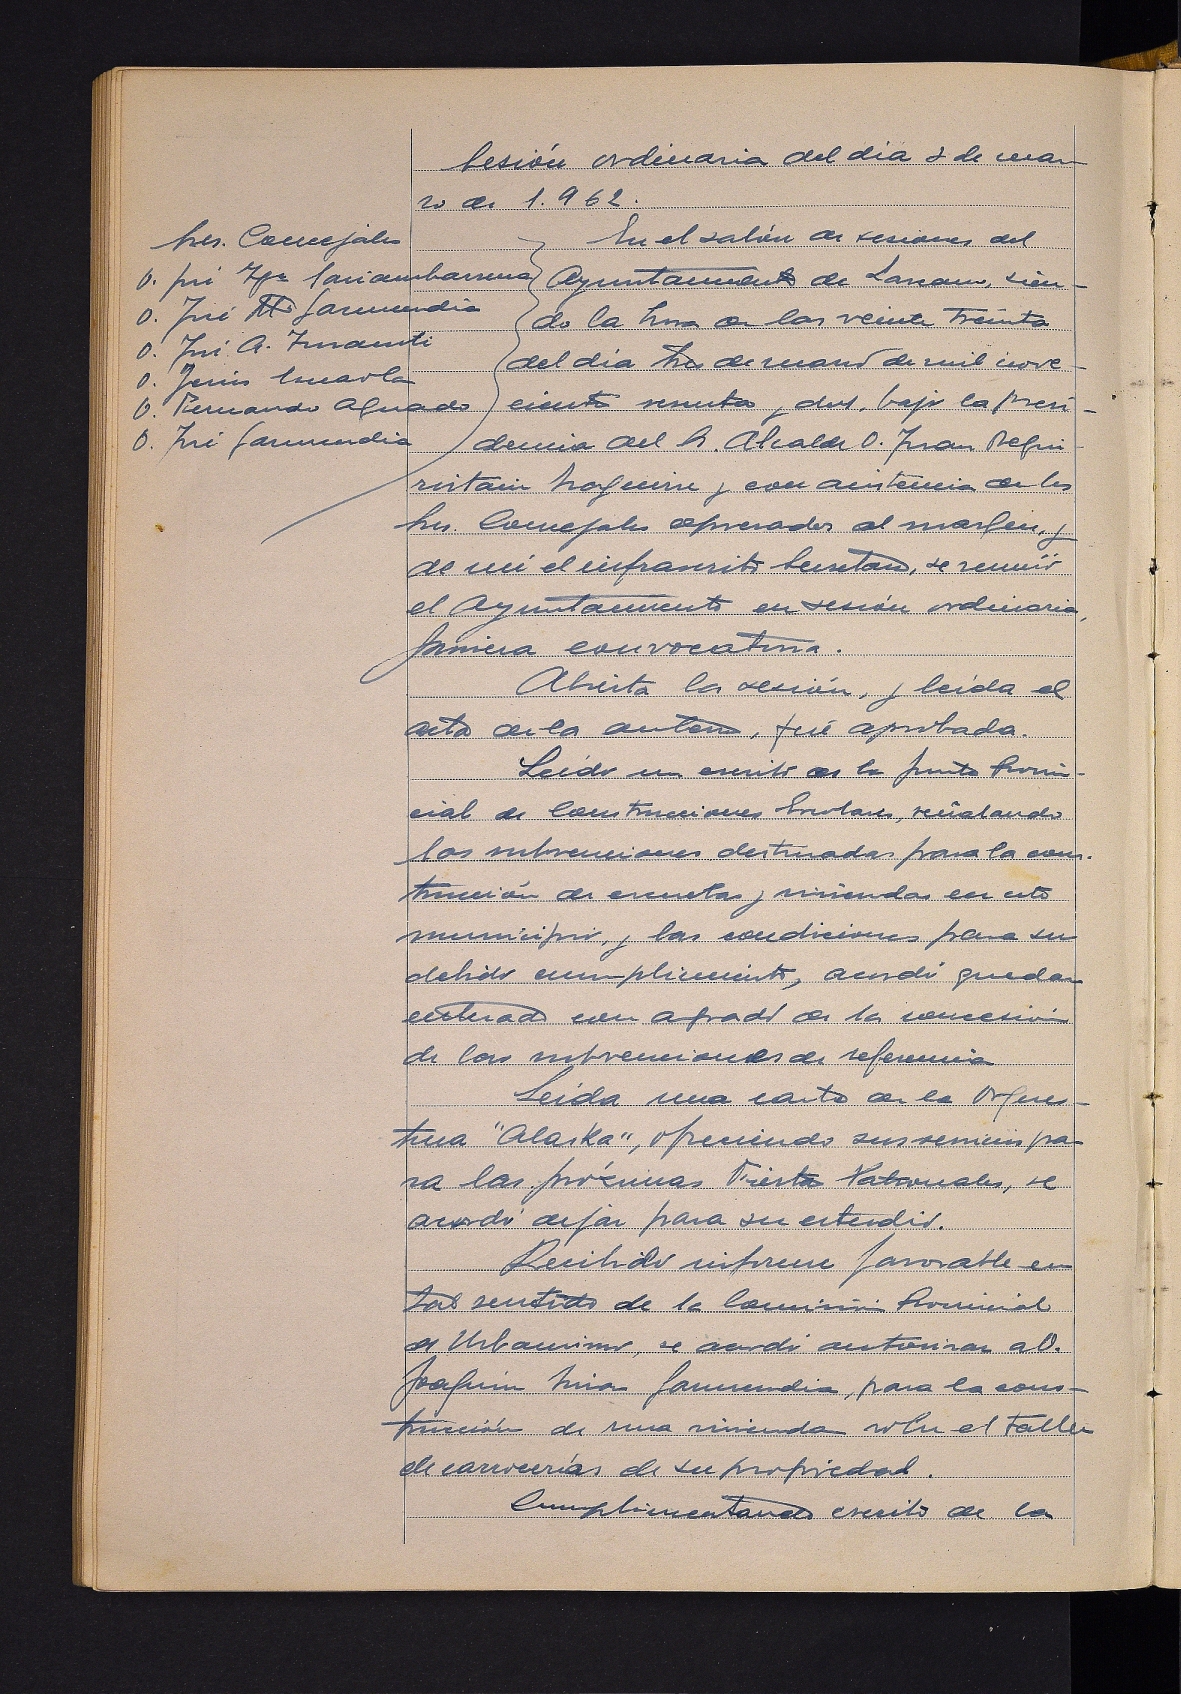 Sesión ordinaria del dia 3 de mar-
zo de 1.962.
Sres. Concejales
D. José Igº Sarianbarrena
D. José Mª Garmendia
D. José A. Insausti
D. Jesús
D. Fernando Aguado
D. José Garmendia
En el salón de sesiones del
Ayuntamiento de Lazcano, sien-
do la hora de las veinte treinta
del dia tres de marzo de mil nove-
cientos sesenta y dos, bajo la presi-
dencia del Sr. Alcalde D. Juan Begui-
ristain y con asistencia de los
Sres. Concejales expresados al margen, y
de mi el infrascrito Secretario, se reunió
el Ayuntamiento en sesión ordinaria,
primera convocatoria.
Abierta la sesión, y leida el
acta de la anterior, fué aprobada.
Leido un escrito de la Junta Provin-
cial de Construcciones Escolares, señalando
las subvenciones destinadas para la cons-
trucción de escuelas y viviendas en este
municipio, y las condiciones para su
debido cumplimiento, acordó quedar
enterado con agrado de la concesión
de las subvenciones de referencia
Leida una carta de la Orques-
tina "Alaska", ofreciendo sus servicios pa-
ra las próximas Fiestas Patronales, se
acordó dejar para su estudio.
Recibido informe favorable en
tal sentido de la Comisión Provincial
de Urbanismo, se acordó autorizar a D.
Joaquin Garmendia, para la cons-
trucción de una vivienda sobre el taller
de carrocerías de su propiedad.
Cumplimentando escrito de la